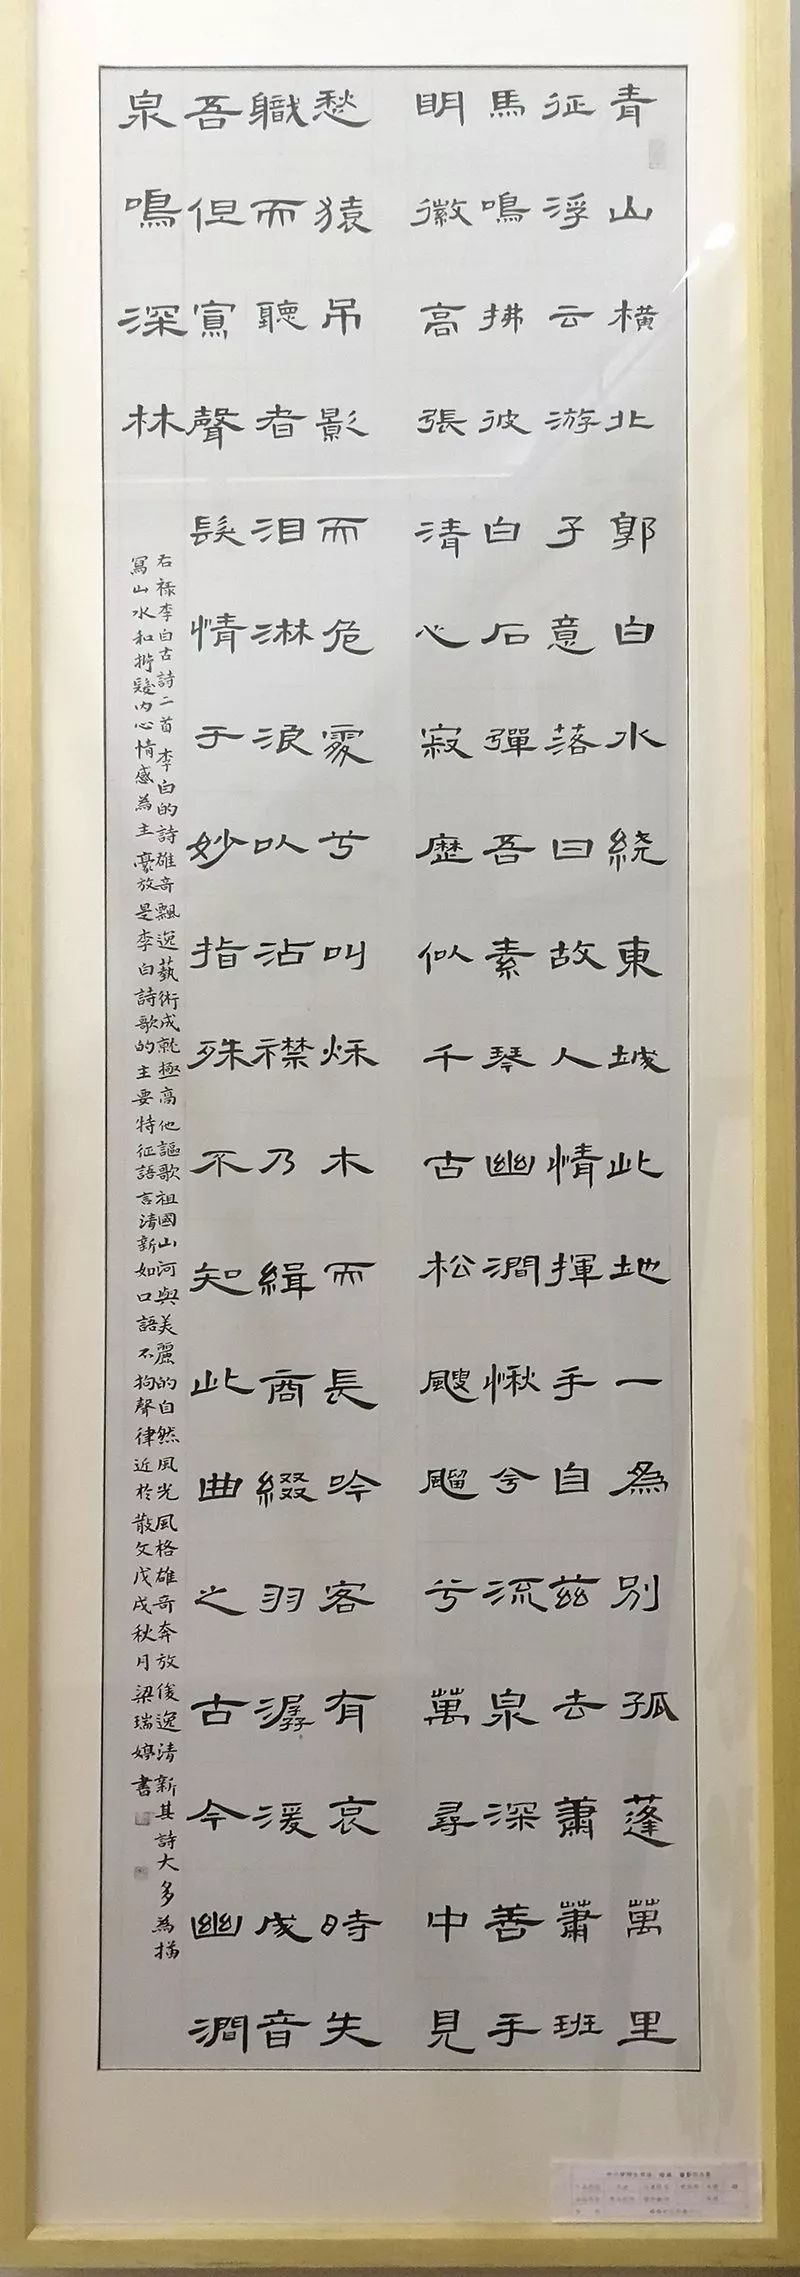 青山橫北郭白水繞東城此地一為別孤蓬萬里
征浮云游子意落日故人情揮手自茲去蕭蕭班
馬鳴拂彼白石彈吾素琴幽澗愀兮流泉深善手
明徽高張清心寂歷似千古松颼飀兮萬尋中見
愁猿吊影而危處兮叫秌木而長吟客有哀時失
職而聽者泪淋浪以沾襟乃緝商綴羽潺湲成音
吾但寫聲髮情于妙指殊不知此曲之古今幽澗
泉鳴深林
右祿李白古詩二首李白的詩雄奇飄逸藝術成就極高他謳歌祖國山河與美麗的自然風光風格雄奇奔放俊逸清新其詩大多為描
寫山水和抒髮內心情感為主豪放是李白詩歌的主要特征語言清新如口語不拘聲律近於散文戊戌秋月梁瑞婷書